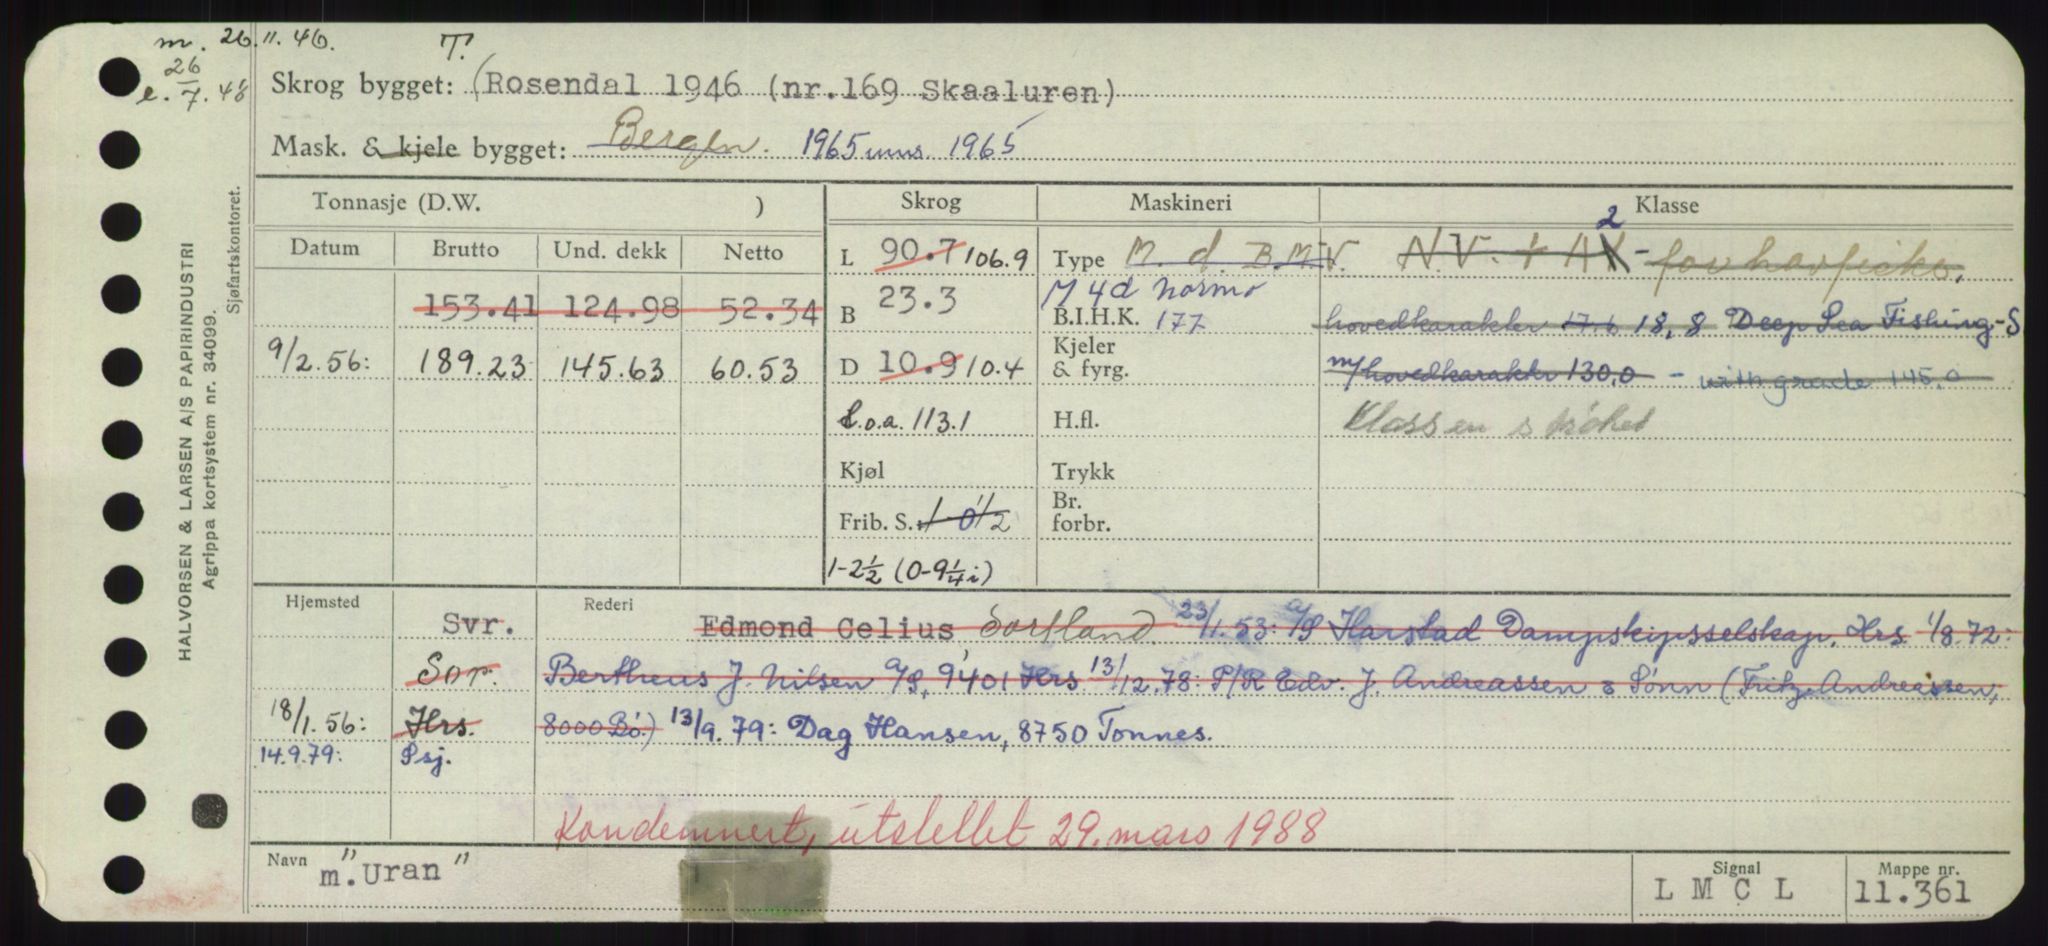 m. 26.11.46.
e. 26/7. 48
T.
Skrog bygget: (Rosendal 1946 (nr.169 Skaaluren)
Mask. & kjele bygget: Bergen. 1965 1965
Tonnasje (D.W. )
Skrog
Maskineri
Klasse
Datum Brutto Und. dekk Netto
153.41 124.98 52.34
9/2.56: 189.23 145.63 60.53
L 90.7 106.9
B 23.3
D 10.9 10.4
L.o.a. 113.1
Kjøl
Frib. S. 1-0 1/2
1-2 1/2 (0-9 1/4 i)
Type M. d. B.M.V.
M 4d Normo
B.I.H.K. 177
Kjeler
& fyrg.
H.fl.
Trykk
Br.
forbr.
2
N.V. + A - for havfiske.
hovedkarakter 17.6 18,8 Deep Sea Fishing-S
m/hovedkarakter 130,0 - with grade 145,0
Klassen strøket
Hjemsted
Rederi
Svr. Edmond Celius, Sortland. 23/1.53: A/S Harstad Dampskipsselskap, Hrs. 1/8.72:
Sor. Bertheus J. Nilsen A/S, 9401 Hrs 13/12.78: P/R Edv. J. Andreassen & Sønn (Fritz Andreassen,
18/1.56: Hrs. 8000 Bö.) 13/9.79: Dag Hansen, 8750 Tonnes.
14.9.79: Psj.
Kondemnert, utslettet 29. mars 1988
Navn m."Uran"
Signal
L M C L
Mappe nr.
11.361
HALVORSEN & LARSEN A/S PAPIRINDUSTRI
Agrippa kortsystem nr. 34099.
Sjøfartskontoret.